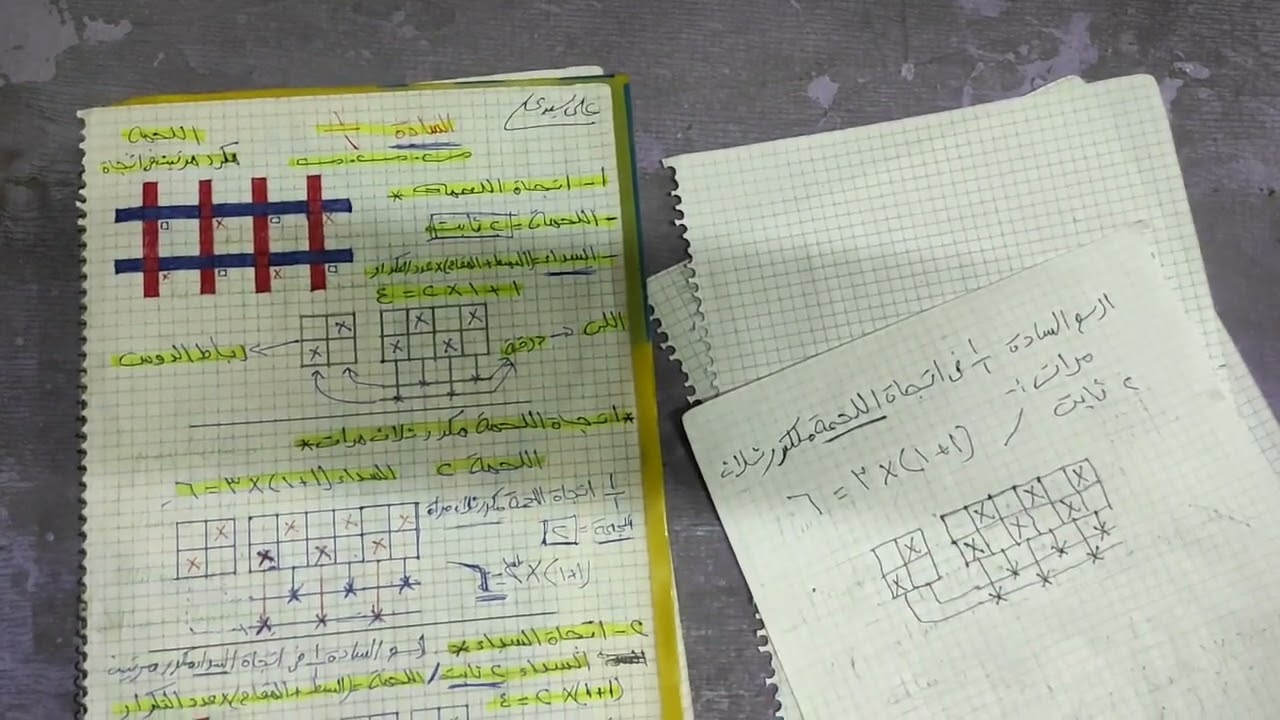 السادة ١/١
اللحمة
مكرر مرتين فى اتجاة
١- اتجاة اللحمة *
- اللحمة = ٢ ثابت
- السداء = (البسط + المقام) × عدد التكرار
١ + ١ × ٢ = ٤
اللى
درقه
رباط الدوس
* اتجاة اللحمة مكرر ثلاث مرات *
اللحمة ٢ السداء (١+١) × ٣ = ٦
١/١ اتجاة اللحمة مكرر ثلاث مرات
اللحمة = ٢
(١+١) × ٣ = ٦
٢- اتجاة السداء * ارسم السادة ١/١ فى اتجاة السداء مكرر مرتين
السداء ٢ ثابت / اللحمة = (البسط + المقام) × عدد التكرار
(١+١) × ٢ = ٤
ارسم السادة ١/١ فى اتجاة اللحمة مكرر ثلاث
مرات :-
٢ ثابت /
(١+١) × ٣ = ٦